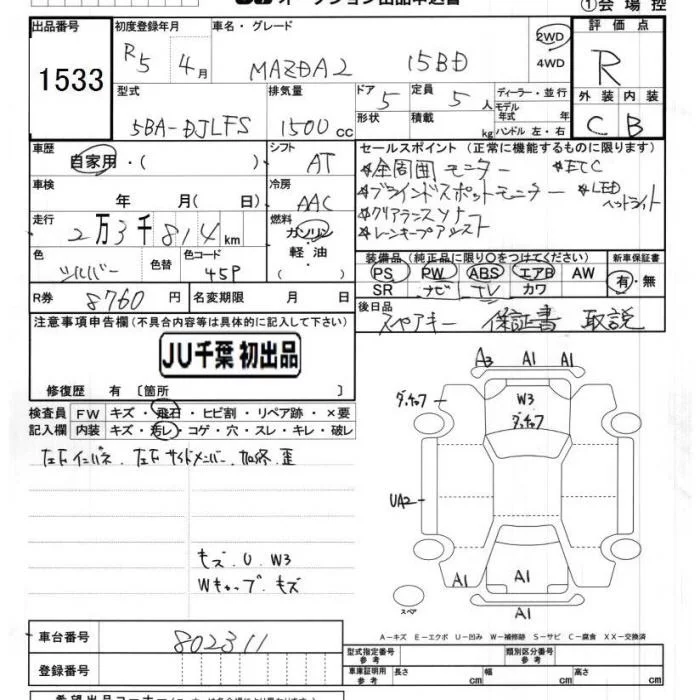 ①会場控
出品番号
1533
初度登録年月
R5 4月
車名・グレード
MAZDA2 15BD
2WD
4WD
評価点
R
外装 内装
C B
型式
5BA-DJLFS
排気量
1500 cc
ドア
5
形状
定員
5人
積載
kg
ディーラー・並行
モデル年式 年
ハンドル 左・右
車歴
自家用・( )
シフト
AT
車検
年 月( 日)
冷房
AAC
走行
2万3千814km
燃料
ガソリン
軽・油
・( )
色
シルバー
色替
色コード
45P
R券 8760円
名変期限 月 日
セールスポイント (正常に機能するものに限ります)
*全周囲モニター *ETC
*ブラインドスポットモニター *LEDヘッドライト
*クリアランスソナー
*レーンキープアシスト
装備品(純正品に限り○をつけてください)
PS PW ABS エアB AW
SR ナビ TV カワ
新車保証書
有・無
後日品
スペアキー 保証書 取説
注意事項申告欄(不具合内容等は具体的に記入して下さい)
JU千葉 初出品
修復歴 有 〔箇所 〕
検査員記入欄
FW キズ・飛石・ヒビ割・リペア跡・×要
内装 キズ・汚レ・コゲ・穴・スレ・キレ・破レ
左Fインパネ、左Fサイドメンバー、加修、歪
キズ、U、W3
Wキャップ、キズ
A3 A1 A1
W3
ダ,チョフ
ダ,チョフ
UA2
A1 A1
A1
スペア
A-キズ E-エクボ U-凹み W-補修跡 S-サビ C-腐食 XX-交換済
車台番号
802311
登録番号
型式指定番号 参考
類別区分番号 参考
車庫証明用 参考
長さ cm
幅 cm
高さ cm